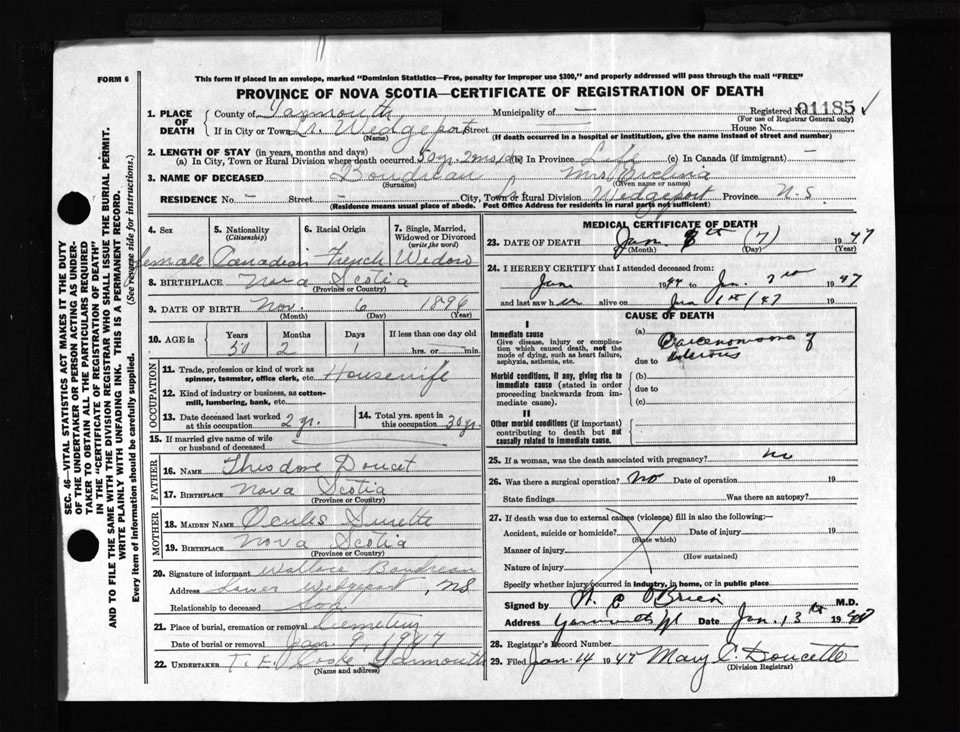 FORM 6
This form if placed in an envelope, marked "Dominion Statistics—Free, penalty for improper use $300," and properly addressed will pass through the mail "FREE"
PROVINCE OF NOVA SCOTIA—CERTIFICATE OF REGISTRATION OF DEATH
1. PLACE OF DEATH County of Yarmouth Municipality of — Registered No. 01185 ✓
(For use of Registrar General only)
If in City or Town Wedgeport Street — House No.
(Name) (If death occurred in a hospital or institution, give the name instead of street and number)
2. LENGTH OF STAY (in years, months and days)
(a) In City, Town or Rural Division where death occurred 50 yr. 2 ms. (b) In Province Life (c) In Canada (if immigrant) —
3. NAME OF DECEASED Boudreau Mrs
(Surname) (Given name or names)
RESIDENCE No. — Street — City, Town or Rural Division Lr. Wedgeport Province N.S
(Residence means usual place of abode. Post Office Address for residents in rural parts not sufficient)
SEC. 46—VITAL STATISTICS ACT MAKES IT THE DUTY
OF THE UNDERTAKER OR PERSON ACTING AS UNDER-
TAKER TO OBTAIN ALL THE PARTICULARS REQUIRED
IN THE "CERTIFICATE OF REGISTRATION OF DEATH"
AND TO FILE THE SAME WITH THE DIVISION REGISTRAR WHO SHALL ISSUE THE BURIAL PERMIT.
WRITE PLAINLY WITH UNFADING INK. THIS IS A PERMANENT RECORD.
Every item of information should be carefully supplied. (See reverse side for instructions.)
4. Sex 5. Nationality 6. Racial Origin 7. Single, Married,
(Citizenship) Widowed or Divorced
(write the word)
female Canadian French Widow
8. BIRTHPLACE Nova Scotia
(Province or Country)
9. DATE OF BIRTH Nov. 6 1896
(Month) (Day) (Year)
10. AGE in Years Months Days If less than one day old
50 2 1 hrs. or min.
OCCUPATION
11. Trade, profession or kind of work as
spinner, teamster, office clerk, etc. Housewife
12. Kind of industry or business, as cotton-
mill, lumbering, bank, etc.
13. Date deceased last worked
at this occupation 2 yr.
14. Total yrs. spent in
this occupation 30 yr.
15. If married give name of wife
or husband of deceased
FATHER
16. NAME Theodore Doucet
17. BIRTHPLACE Nova Scotia
(Province or Country)
MOTHER
18. MAIDEN NAME
19. BIRTHPLACE Nova Scotia
(Province or Country)
20. Signature of informant Wallace Boudreau
Address Lower Wedgeport, NS
Relationship to deceased Son
21. Place of burial, cremation or removal Cemetery
Date of burial or removal Jan 9, 1947
22. UNDERTAKER T. E. Yarmouth
(Name and address)
MEDICAL CERTIFICATE OF DEATH
23. DATE OF DEATH Jan. (7) 1947
(Month) (Day) (Year)
24. I HEREBY CERTIFY that I attended deceased from
Jan 194 to Jan. 7 1947
and last saw her alive on Jan 1st/47 19
CAUSE OF DEATH
I
Immediate cause
Give disease, injury or complication which caused death, not the
mode of dying, such as heart failure,
asphyxia, asthenia, etc.
(a) Carcenomoma of
due to uterous
Morbid conditions, if any, giving rise to
immediate cause (stated in order
proceeding backwards from immediate cause).
(b)
due to
(c)
II
Other morbid conditions (if important)
contributing to death but not
causally related to immediate cause.
25. If a woman, was the death associated with pregnancy? no
26. Was there a surgical operation? No Date of operation 19
State findings Was there an autopsy?
27. If death was due to external causes (violence) fill in also the following:—
Accident, suicide or homicide? Date of injury 19
(State which)
Manner of injury
(How sustained)
Nature of injury
Specify whether injury occurred in industry, in home, or in public place
Signed by W. E O'Brien M.D.
Address Yarmouth Date Jan. 13th 1947
28. Registrar's Record Number
29. Filed Jan. 14 1947 Mary C. Doucette
(Division Registrar)